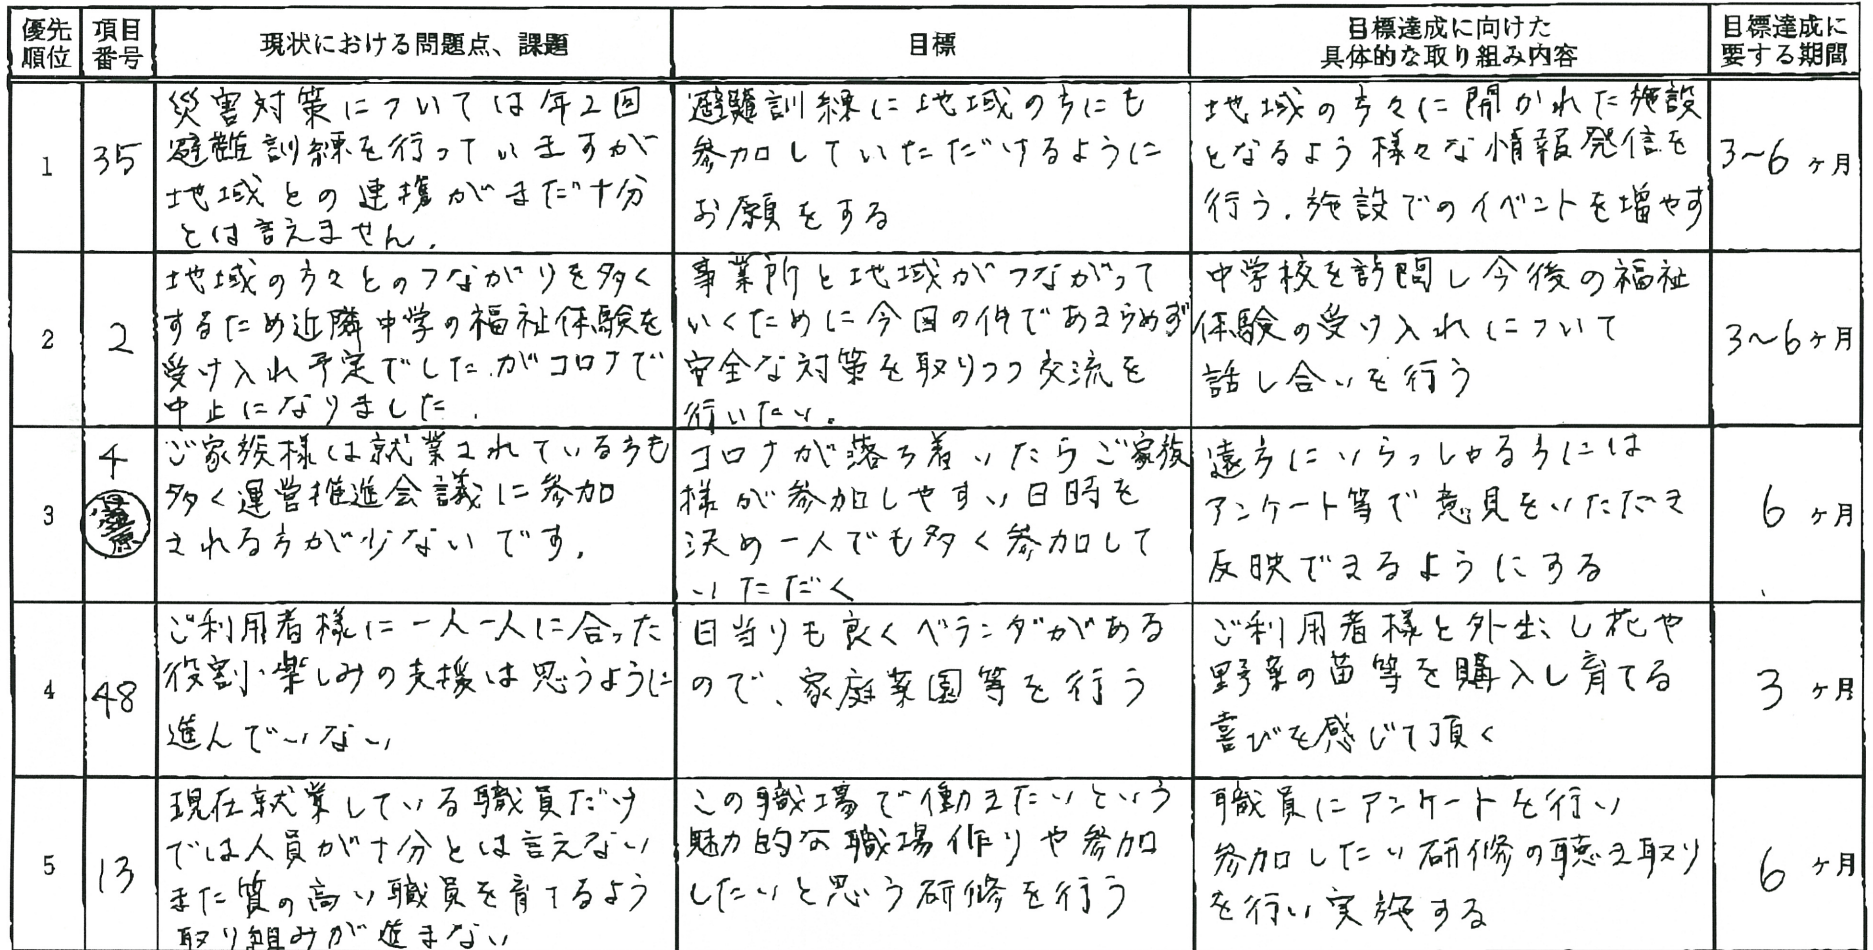 優先
順位
項目
番号
現状における問題点、課題
目標
目標達成に向けた
具体的な取り組み内容
目標達成に
要する期間
1
35
災害対策については年2回
避難訓練を行っていますが
地域との連携がまだ十分
とは言えません.
避難訓練に地域の方にも
参加していただけるように
お願をする
地域の方々に開かれた施設
となるよう様々な情報発信を
行う.施設でのイベントを増やす
3~6ヶ月
2
2
地域の方々とのつながりを多く
するため近隣中学の福祉体験を
受け入れ予定でした.がコロナで
中止になりました.
事業所と地域がつながって
いくために今回の件であきらめず
安全な対策を取りつつ交流を
行いたい。
中学校を訪問し今後の福祉
体験の受け入れについて
話し合いを行う
3~6ヶ月
3
4
ご家族様は就業されている方も
多く運営推進会議に参加
される方が少ないです.
コロナが落ち着いたらご家族
様が参加しやすい日時を
決め一人でも多く参加して
いただく
遠方にいらっしゃる方には
アンケート等で意見をいただき
反映できるようにする
6ヶ月
4
48
ご利用者様に一人一人に合った
役割小楽しみの支援は思うように
進んでいない
日当りも良くベランダがある
ので、家庭菜園等を行う
ご利用者様と外出し花や
野菜の苗等を購入し育てる
喜びを感じて頂く
3ヶ月
5
13
現在就業している職員だけ
では人員が十分とは言えない
また質の高い職員を育てるよう
取り組みが進まない
この職場で働きたいという
魅力的な職場作りや参加
したいと思う研修を行う
職員にアンケートを行い
参加したい研修の聴き取り
を行い実施する
6ヶ月